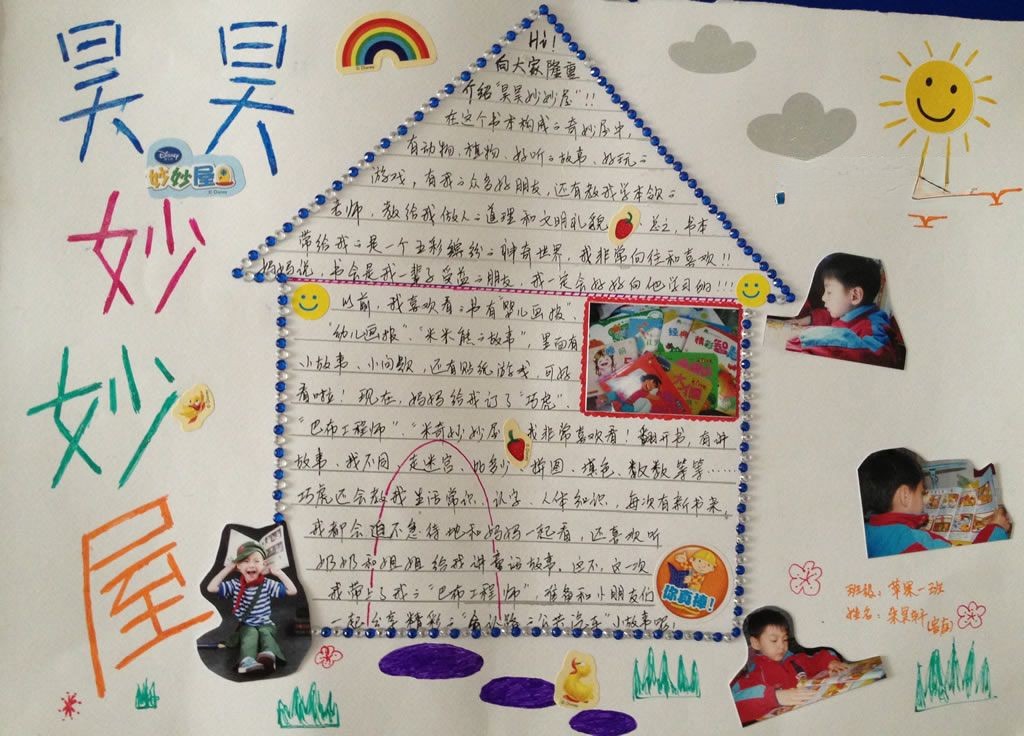 昊昊
妙
妙
屋
Disney
妙妙屋
© Disney
© Disney
Hi！
向大家隆重
介绍“昊昊妙妙屋”！！
在这个书本构成的奇妙屋中，
有动物、植物、好听的故事、好玩的
游戏，有我的众多好朋友，还有教我学本领的
老师，教给我做人的道理和文明礼貌 总之，书本
带给我的是一个五彩缤纷的神奇世界，我非常向往和喜欢！！
妈妈说，书会是我一辈子受益的朋友，我一定会好好向他学习的！！！
以前，我喜欢看的书有“婴儿画报”、
“幼儿画报”、“米米熊的故事”，里面有
小故事、小问题，还有贴纸游戏，可好
看啦！现在，妈妈给我订了“巧虎”、
“巴布工程师”、“米奇妙妙屋 我非常喜欢看！翻开书，有讲
故事、找不同、走迷宫、比多少、拼图、填色、数数等等……
巧虎还会教我生活常识、认字、人体知识，每次有新书来，
我都会迫不急待地和妈妈一起看，还喜欢听
奶奶和姐姐给我讲童话故事。这不，这一次
我带上了我的“巴布工程师”，准备和小朋友们
一起分享精彩的“会认路的公共汽车”小故事呢！
你真棒！
班级：苹果一班
姓名：朱昊轩